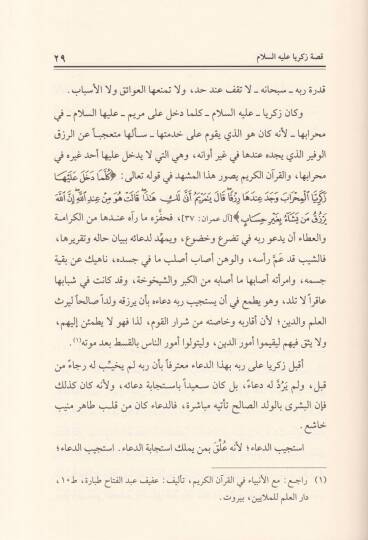 قصة زكريا عليه السلام ٢٩
قدرة ربه ـ سبحانه ـ لا تقف عند حد، ولا تمنعها العوائق ولا الأسباب.
وكان زكريا ـ عليه السلام ـ كلما دخل على مريم ـ عليها السلام ـ في
محرابها ـ لأنه كان هو الذي يقوم على خدمتها ـ سألها متعجباً عن الرزق
الوفير الذي يجده عندها في غير أوانه، وهي التي لا يدخل عليها أحد غيره في
محرابها، والقرآن الكريم يصور هذا المشهد في قوله تعالى: ﴿كُلَّمَا دَخَلَ عَلَيْهَا
زَكَرِيَّا الْمِحْرَابَ وَجَدَ عِندَهَا رِزْقًا قَالَ يَٰمَرْيَمُ أَنَّىٰ لَكِ هَٰذَا قَالَتْ هُوَ مِنْ عِندِ اللَّهِ إِنَّ اللَّهَ
يَرْزُقُ مَن يَشَاءُ بِغَيْرِ حِسَابٍ﴾ [آل عمران: ٣٧]، فحفَّزه ما رآه عندها من الكرامة
والعطاء أن يدعو ربه في تضرع وخضوع، ويمهِّد لدعائه ببيان حاله وتقريرها،
فالشيب قد عَمَّ رأسه، والوهن أصاب أصلب ما في جسده، ناهيك عن بقية
جسمه، وامرأته أصابها ما أصابه من الكبر والشيخوخة، وقد كانت في شبابها
عاقراً لا تلد، وهو يطمع في أن يستجيب ربه دعاءه بأن يرزقه ولداً صالحاً ليرث
العلم والدين؛ لأن أقاربه وخاصته من شرار القوم، لذا فهو لا يطمئن إليهم،
ولا يثق فيهم ليقيموا أمور الدين، وليتولوا أمور الناس بالقسط بعد موته(١).
أقبل زكريا على ربه بهذا الدعاء معترفاً بأن ربه لم يخيِّب له رجاءً من
قبل، ولم يَرُدَّ له دعاءً، بل كان سعيداً باستجابة دعائه، ولأنه كان كذلك
فإن البشرى بالولد الصالح تأتيه مباشرة، فالدعاء كان من قلب طاهر منيب
خاشع.
استجيب الدعاء؛ لأنه عُلِّقَ بمن يملك استجابة الدعاء. استجيب الدعاء؛
(١) راجع: مع الأنبياء في القرآن الكريم، تأليف: عفيف عبد الفتاح طبارة، ط١٠،
دار العلم للملايين، بيروت.